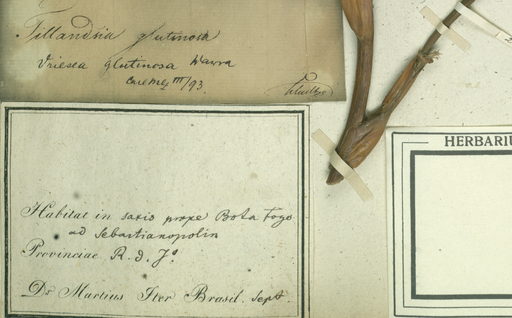 Tillandsia glutinosa
Vriesea glutinosa Wawra
III/93.
HERBARIU
Habitat in saxis prope Bota fogo
ad Sebastianopolin
Provinciae R. d. Jº
Dr Martius Iter Brasil. Sept.